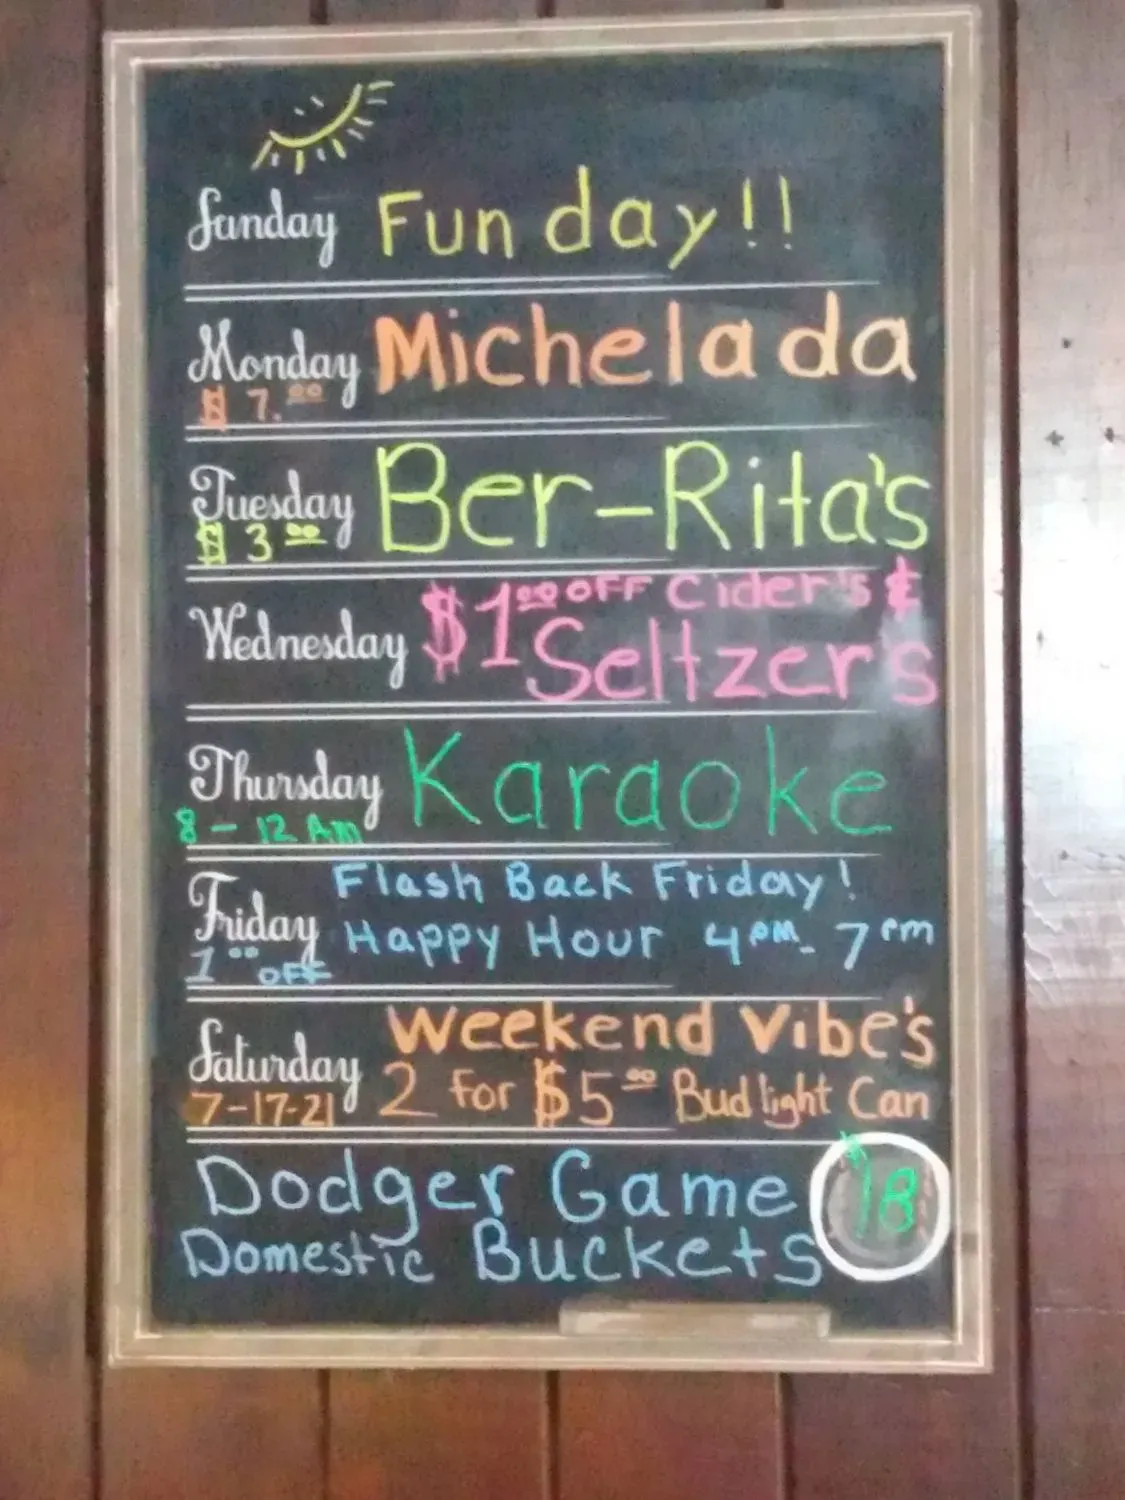 Sunday Funday!!
Monday Michelada
$7.00
Tuesday Ber-Rita's
$3.00
Wednesday $1.00 OFF Cider's &
Seltzer's
Thursday Karaoke
8 - 12 Am
Flash Back Friday!
Friday Happy Hour 4pm - 7pm
1.00 OFF
Weekend Vibe's
Saturday 2 for $5.00 Bud light Can
7-17-21
Dodger Game $18
Domestic Buckets